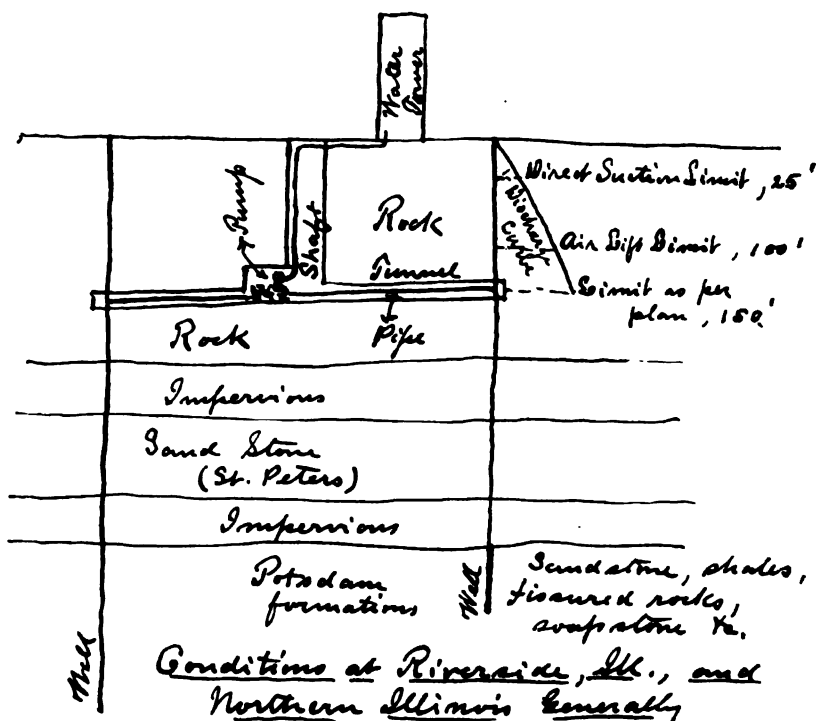 Water
Tower
Pump
Shaft
Rock
Tunnel
Direct Suction Limit, 25'
Discharge
Curve
Air Lift Limit, 100'
Limit as per
plan, 150'
Rock
Pipe
Impervious
Sand Stone
(St. Peters)
Impervious
Potsdam
formations
Well
Sandstone, shales,
fissured rocks,
soapstone &c.
Well
Conditions at Riverside, Ill., and
Northern Illinois Generally